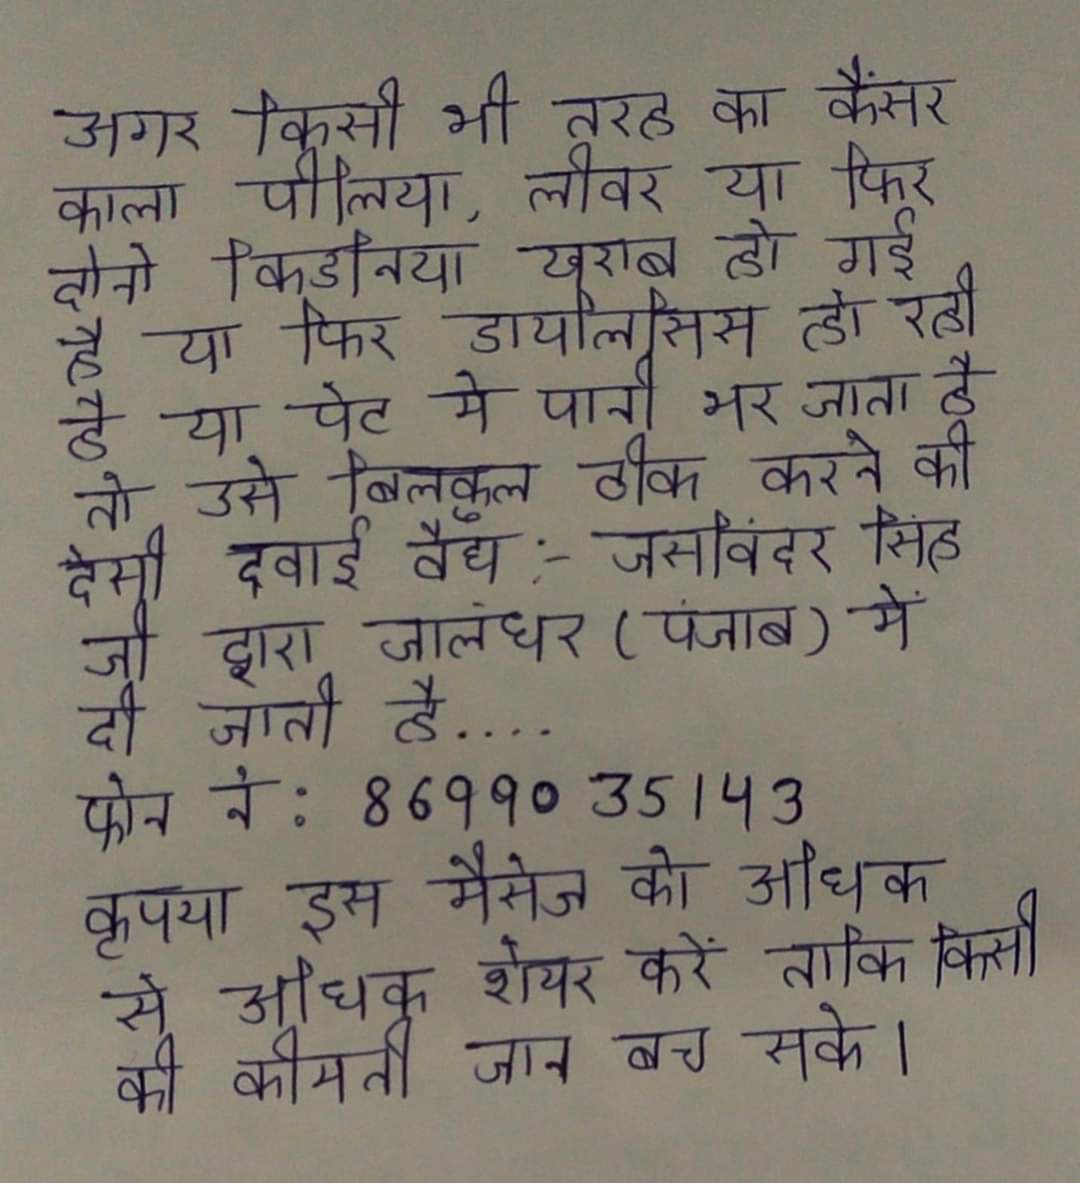 अगर किसी भी तरह का कैंसर
काला पीलिया, लीवर या फिर
दोनो किडनिया खराब हो गई
है या फिर डायलिसिस हो रही
है या पेट मे पानी भर जाता है
तो उसे बिलकुल ठीक करने की
देसी दवाई वैद्य :- जसविंदर सिंह
जी द्वारा जालंधर (पंजाब) में
दी जाती है....
फोन नं : 86990 35143
कृपया इस मैसेज को अधिक
से अधिक शेयर करें ताकि किसी
की कीमती जान बच सके।